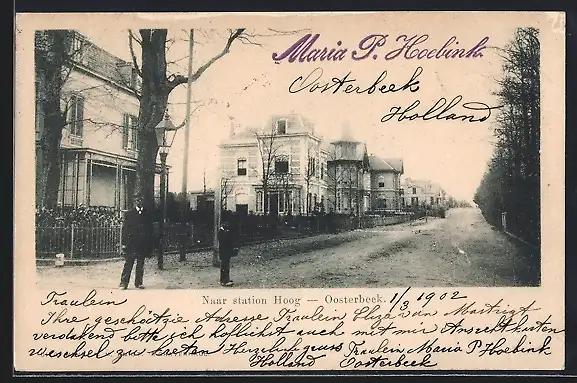 Maria P. Hoebink
Oosterbeek
Holland
Naar station Hoog — Oosterbeek.
1/3 1902
Fraulein
Ihre geschätzie Adresse Fraulein Eliza van Mastrigt
verdakend bitte ich hoflichst auch mit mir Ansechtkarten
wechsel zu treten Herzlich gruss Fraulein Maria P Hoebink
Holland Oosterbeek